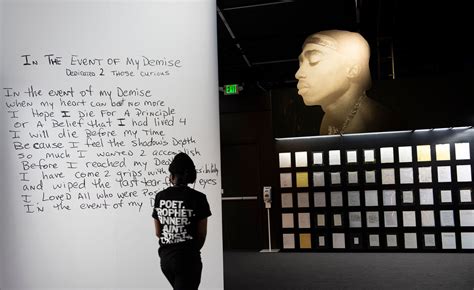 In The Event of My Demise
Dedicated 2 Those Curious
In the event of my Demise
when my heart can beat no more
I Hope I Die For A Principle
or A Belief that I had Lived 4
I will die Before My Time
Because I feel the shadow's Depth
so much I wanted 2 accomplish
Before I reached my Dea
I have come 2 grips with
and wiped the last tear
eyes
I Loved All who were Pos
In the event of my De
EXIT
POET.
PROPHET.
SINNER.
SAINT.